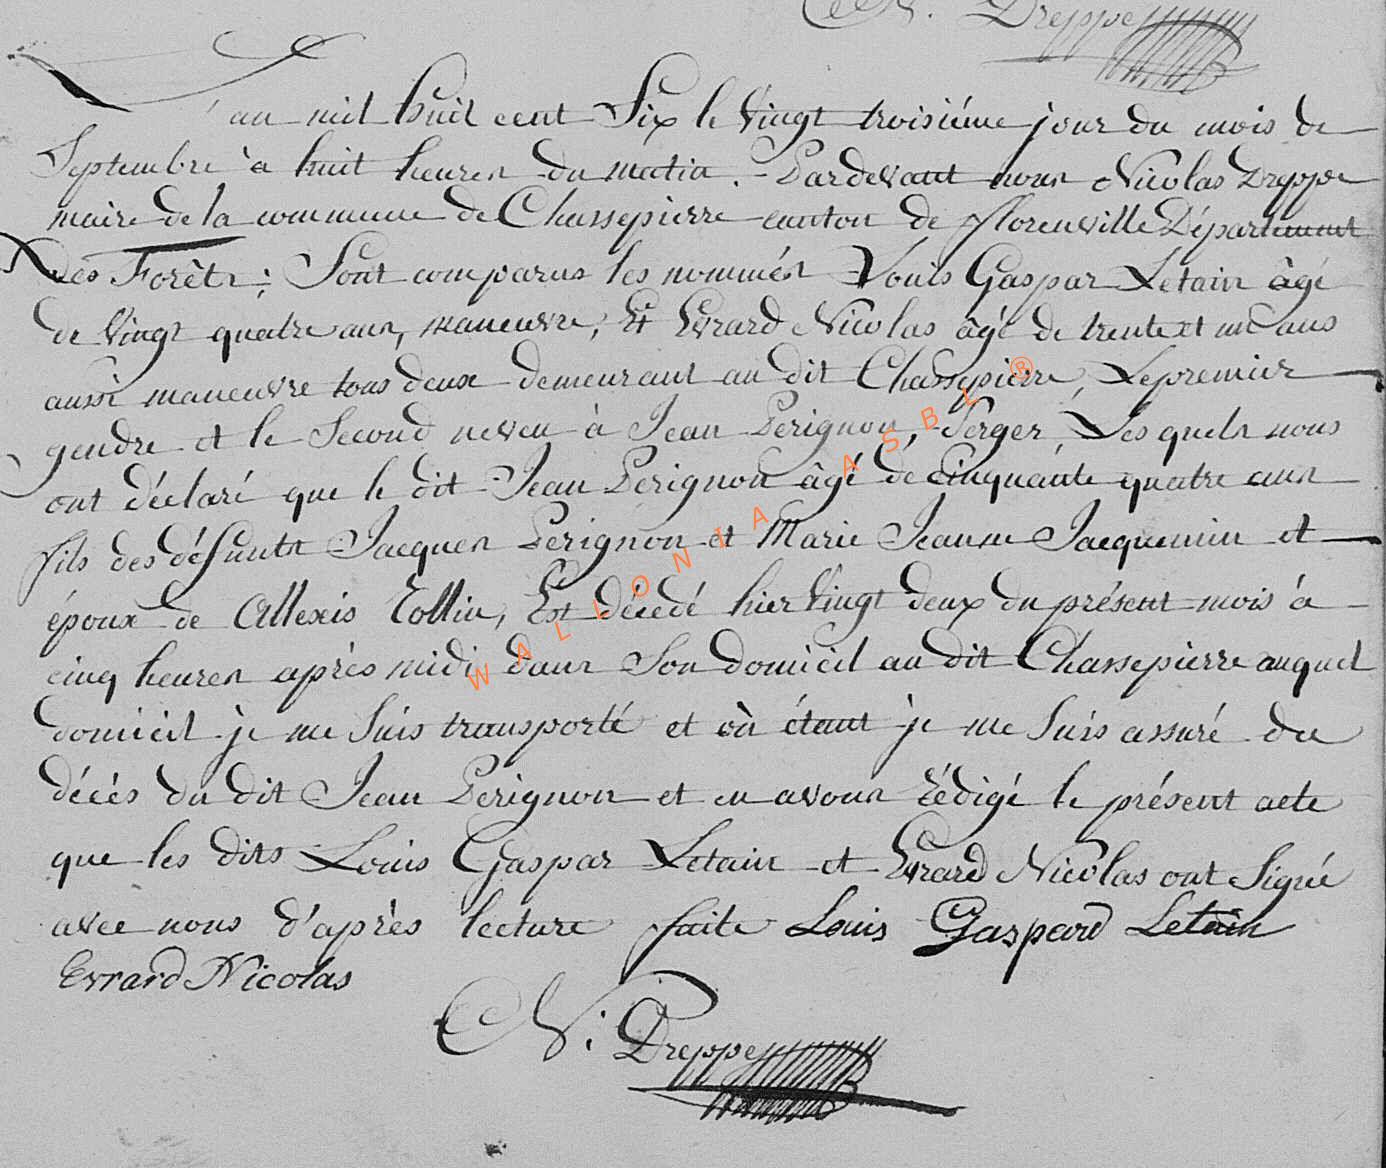 N. Dreppe
L'an mil huit cent Six le Vingt troisiéme jour du mois de
Septembre à huit heures du matin. Pardevant nous Nicolas Dreppe
maire de la commune de Chassepierre canton de florenville Département
Des Forêts; Sont comparus les nommés Louis Gaspar Letain âgé
de Vingt quatre ans, maneuvre, Et Evrard Nicolas âgé de trente et un ans
aussi maneuvre tous deux demeurant au dit Chassepierre, Le premier
gendre et le Second neveu à Jean Perignon, Serger, Les quels nous
ont déclaré que le dit Jean Perignon âgé de Cinquante quatre ans
fils des défunts Jacques Perignon et Marie Jeanne Jacquemin et
époux de Allexis Collin, Est décédé hier Vingt deux du présent mois à
cinq heures après midi dans Son domicil au dit Chassepierre auquel
domicil je me Suis transporté et où étant je me Suis assuré du
décès du dit Jean Perignon et en avons rédigé le présent acte
que les dits Louis Gaspar Letain et Evrard Nicolas ont Signé
avec nous d'après lecture faite Louis Gaspard Letain
Evrard Nicolas
N: Dreppe
WALLONIA ASBL ®